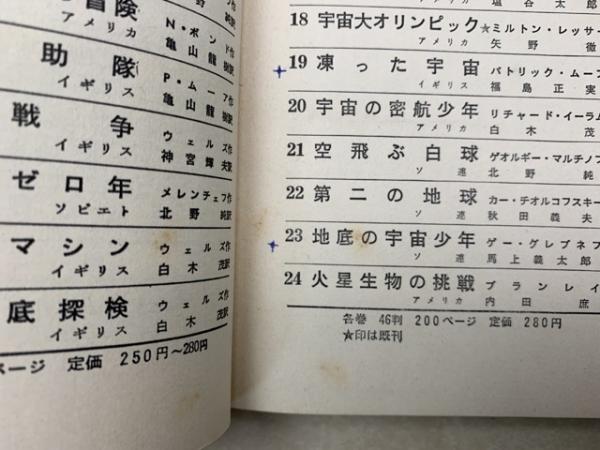 冒険
アメリカ
N・ボンド作
亀山龍樹訳
助隊
イギリス
P・ムーア作
亀山龍樹訳
戦争
イギリス
ウェルズ作
神宮輝夫訳
ゼロ年
ソビエト
メレンチェフ作
北野純訳
マシン
イギリス
ウェルズ作
白木茂訳
底探検
イギリス
ウェルズ作
白木茂訳
ページ 定価 250円~280円
アメリカ 塩谷太郎
18 宇宙大オリンピック★ミルトン・レッサー
アメリカ 矢野徹
19 凍った宇宙 パトリック・ムーア
イギリス 福島正実
20 宇宙の密航少年 リチャード・イーラム
アメリカ 白木茂
21 空飛ぶ白球 ゲオルギー・マルチノフ
ソ連 北野純
22 第二の地球 カー・チオルコフスキー
ソ連 秋田義夫
23 地底の宇宙少年 ゲー・グレブネフ
ソ連 馬上義太郎
24 火星生物の挑戦 ブランレイ
アメリカ 内田庶
各巻 46判 200ページ 定価 280円
★印は既刊